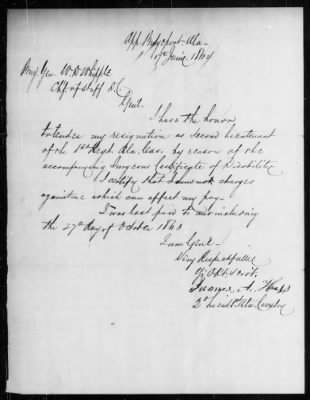 Bridgeport Ala
June 1864
Brig. Gen. W D Whipple
Chf. of Staff D.C.
Genl.
I have the honor
to tender my resignation as second lieutenant
of the 1st Regt. Ala. Cav. by reason of the
accompanying Surgeons Certificate of Disability
I certify that I charges
against me which can affect my pay.
I was last paid to and including
the 27th Day of October 1863
I am Genl.
Very Respectfully
Yr. Obt. Servt.
A.
2d Lieut 1st Ala Cavalry